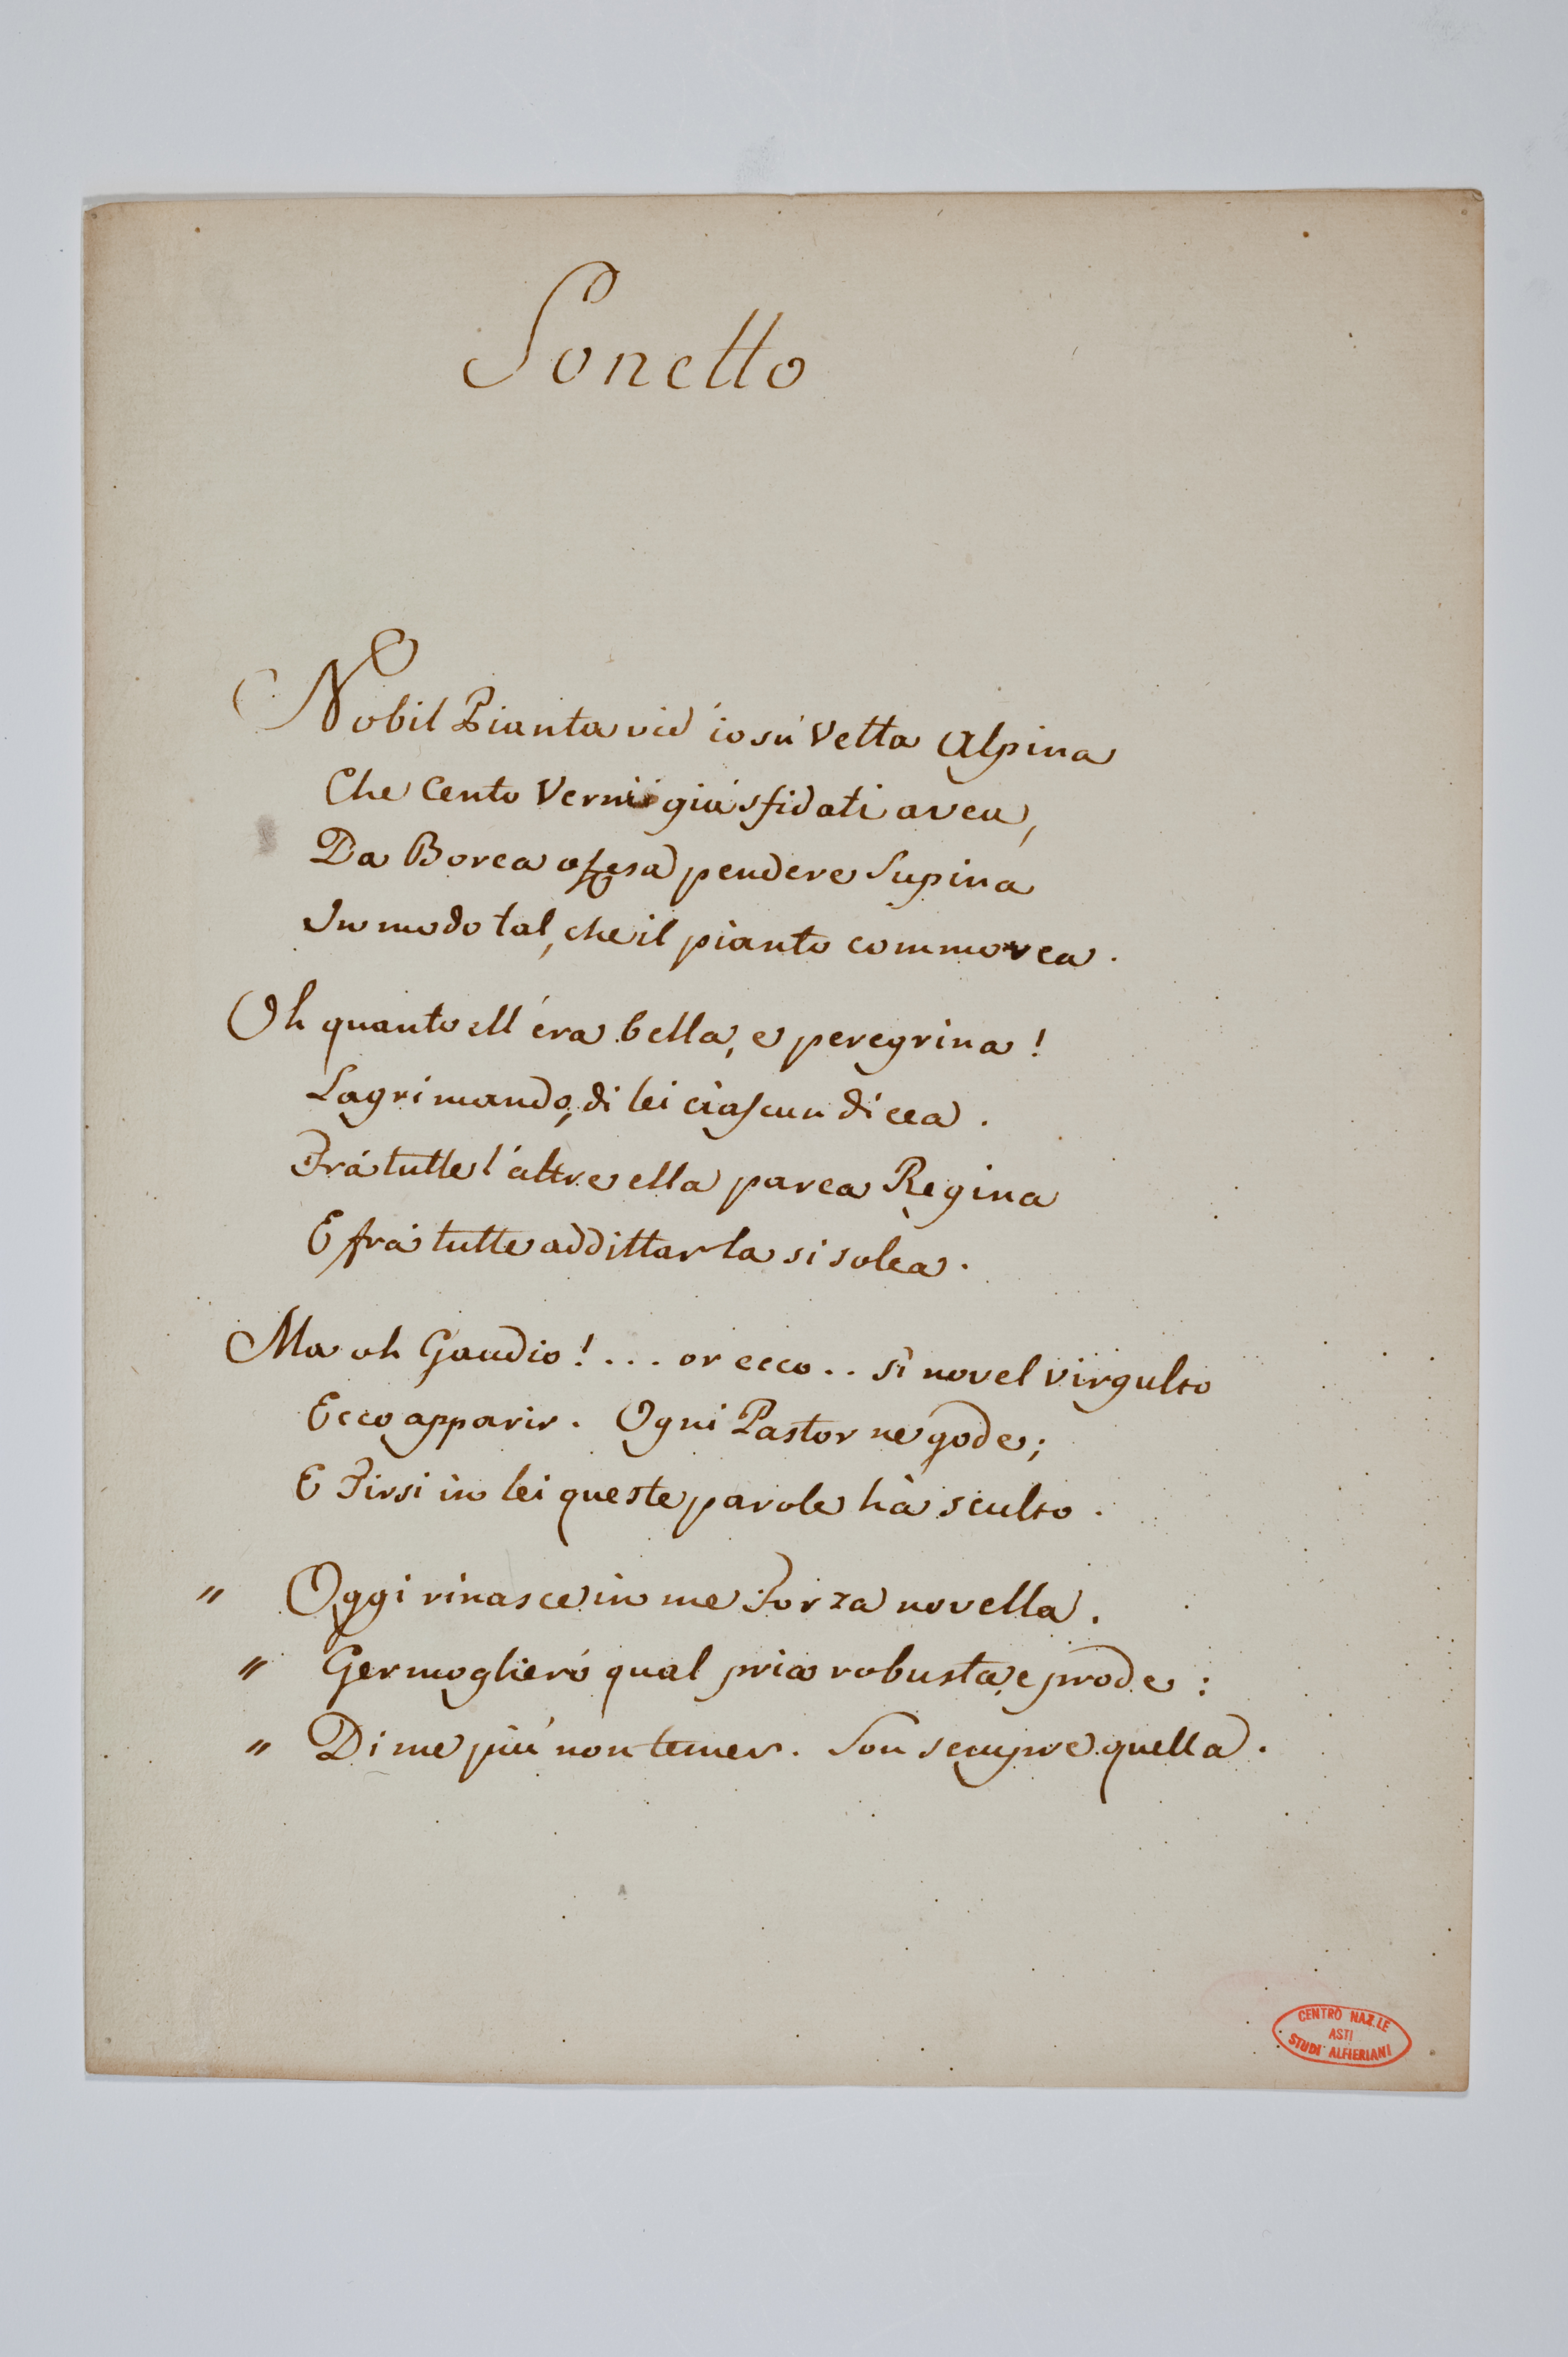 Sonetto
Nobil Pianta vid' io sù Vetta Alpina
Che Cento Verni già sfidati avea,
Da Borea offesa pendere Supina
In modo tal, che il pianto commovea.
Oh quanto ell' éra bella, e peregrina!
Lagrimando, di lei ciascun dicea.
Frá tutte l'altre ella parea Regina
E frà tutte addittarla si solea.
Ma oh Gaudio!... or ecco.. sì novel virgulto
Ecco apparir. Ogni Pastor ne gode;
E Tirsi in lei queste parole hà sculto.
" Oggi rinasce in me Forza novella.
" Germoglieró qual pria robusta, e prode:
" Di me più non temer. Son sempre quella.
CENTRO NAZ.LE
ASTI
STUDI ALFIERIANI